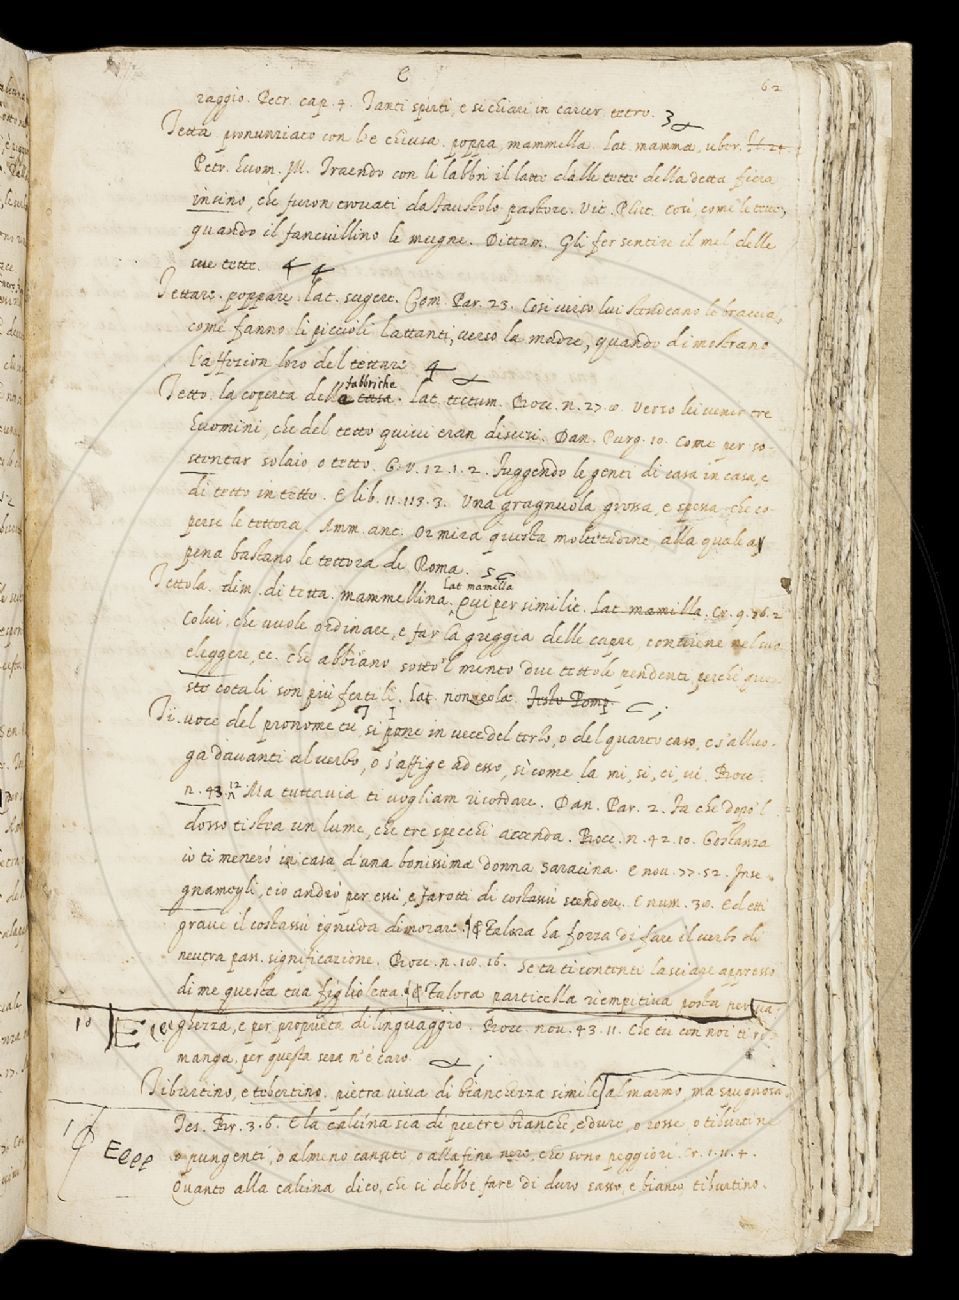 C
62
raggio. Petr. cap. 4. Tanti spirti, e si chiari in carcer tetro.
3
Tetta pronunziato con l'e chiusa. poppa, mammella. Lat. mamma, uber.
Petr. huom. Ill. Traendo con le labbri il latte dalle tette della detta fiera
insino, che furon trovati da Faustolo pastore. Vit. Plut. Così, come le tette,
quando il fanciullino le mugne. Dittam. Gli fer sentire il mel delle
sue tette. 4 4
Tettare. poppare. Lat. sugere. Com. Par. 23. Così verso lui stendeano le braccia,
come fanno li piccioli lattanti, verso la madre, quando dimostrano
l'affezion loro del tettare. 4
fabbriche
Tetto. la coperta delle casa. Lat. tectum. Bocc. n. 27. 8. Verso lei venir tre
huomini, che del tetto quivi eran discesi. Dan. Purg. 10. Come per so-
stentar solaio, o tetto. G. V. 12. 1. 2. Fuggendo le genti di casa in casa, e
di tetto in tetto. E lib. 11. 113. 3. Una gragnuola grossa, e spessa, che co-
perse le tettora. Amm. ant. Or mira questa moltitudine alla quale ap
pena bastano le tettora di Roma.
Lat mamilla
Tettola. dim. di tetta. mammellina. Qui per similit. Lat. mamilla. Cr. 9. 76. 2
Colui, che vuole ordinare, e far la greggia delle capre, conviene nel suo
eleggere, ec. che abbiano sotto 'l mento due tettole pendenti, perchè que-
ste cotali son più fertili. Lat. noneola.
Ti. voce del pronome tu, si pone in vece del terzo, o del quarto caso, e s'alluo-
ga davanti al verbo, o s'affige ad esso, sì come la mi, si, ci, vi. Bocc.
n. 43. 12 Ma tuttavia ti vogliam ricordare. Dan. Par. 2. Fa che dopo 'l
dosso ti stea un lume, che tre specchi accenda. Bocc. n. 42. 10. Gostanza
io ti menerò in casa d'una bonissima donna Saracina. E nov. 77. 52. Inse-
gnamegli, e io andrò per essi, e farotti di costassù scendere. E num. 30. Ed etti
grave il costassù ignuda dimorare. Talora ha forza di fare il verbo di
neutra pass. significazione. Bocc. n. 18. 16. Se ta ti contenti lasciare appresso
di me questa tua figlioletta. Talora particella riempitiva posta per va-
10 E ghezza, e per proprietà di linguaggio. Bocc. nov. 43. 11. Che tu con noi ti ri-
manga per questa sera n'è caro.
Tiburtino, e tebertino. pietra viva di bianchezza simile al marmo, ma spugnosa.
Tes. Br. 3. 6. E la calcina sia di pietre bianche, e dure, o rosse, o tiburtine
o pungenti, o almeno canute, o alla fine nere, che sono peggiori. Cr. 1. 11. 4.
Quanto alla calcina dico, che si debbe fare di duro sasso, e bianco tiburtino.